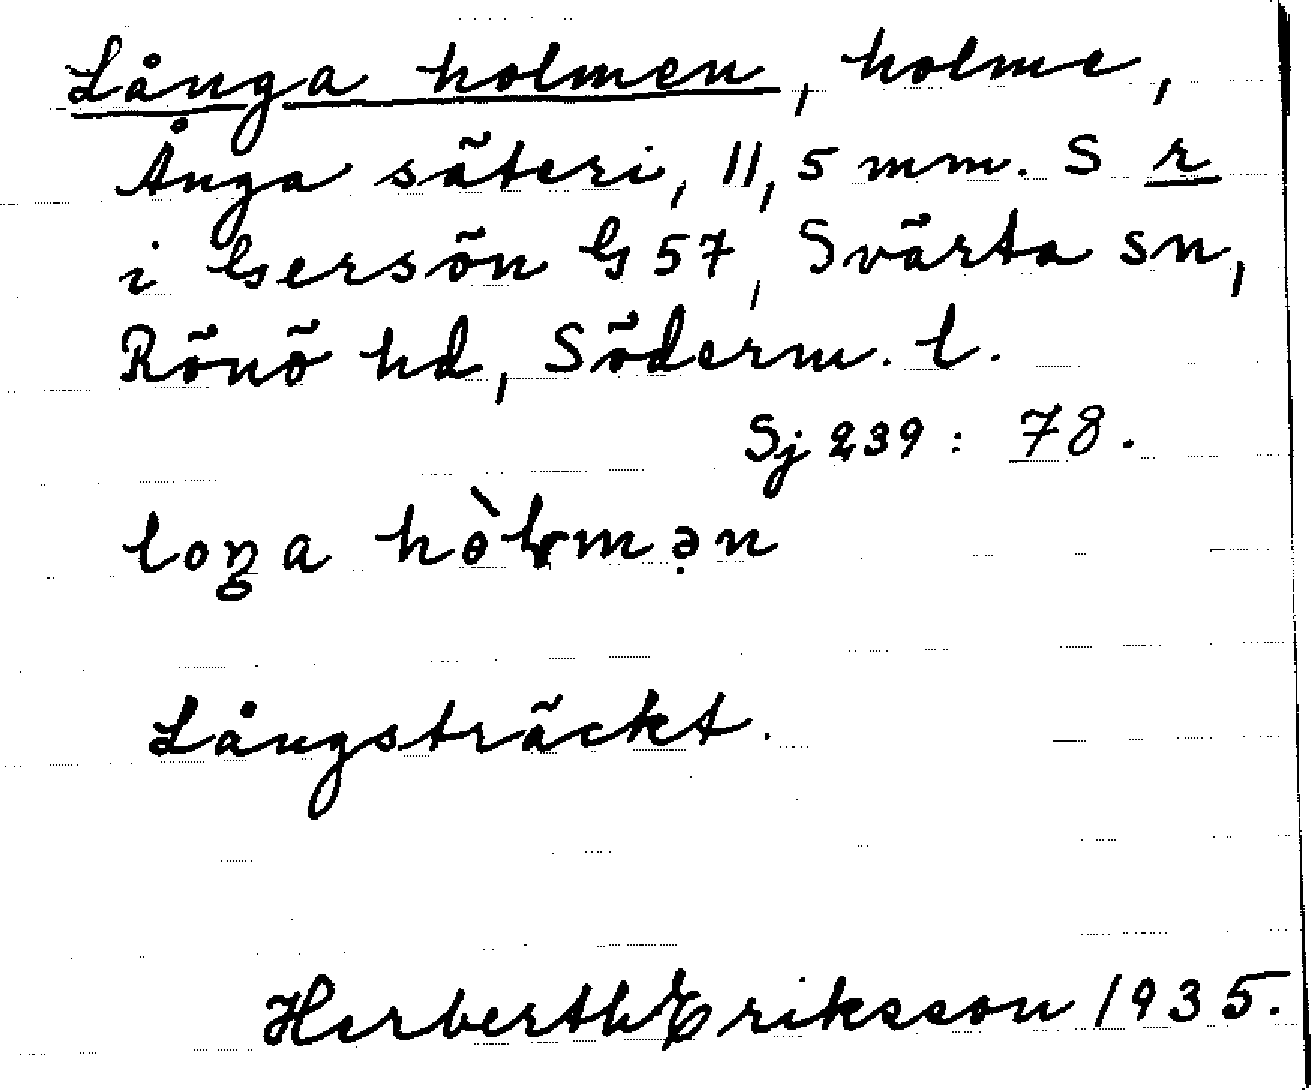 Långa holmen, holme,
Ånga säteri, 11,5 mm. S r
i Gersön G 57, Svärta sn,
Rönö hd, Söderm. l.
Sj 239: 78.
loŋa hòlmən
Långsträckt.
Herberth Eriksson 1935.